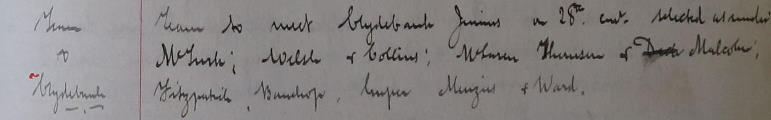 Team Team to meet Clydebank Juniors on 28th. curt. selected as under
v McTurk; Welsh & Collins; McLaren Thomson & Malcolm;
Clydebank Fitzpatrick, Bauchop, Menzies & Ward.